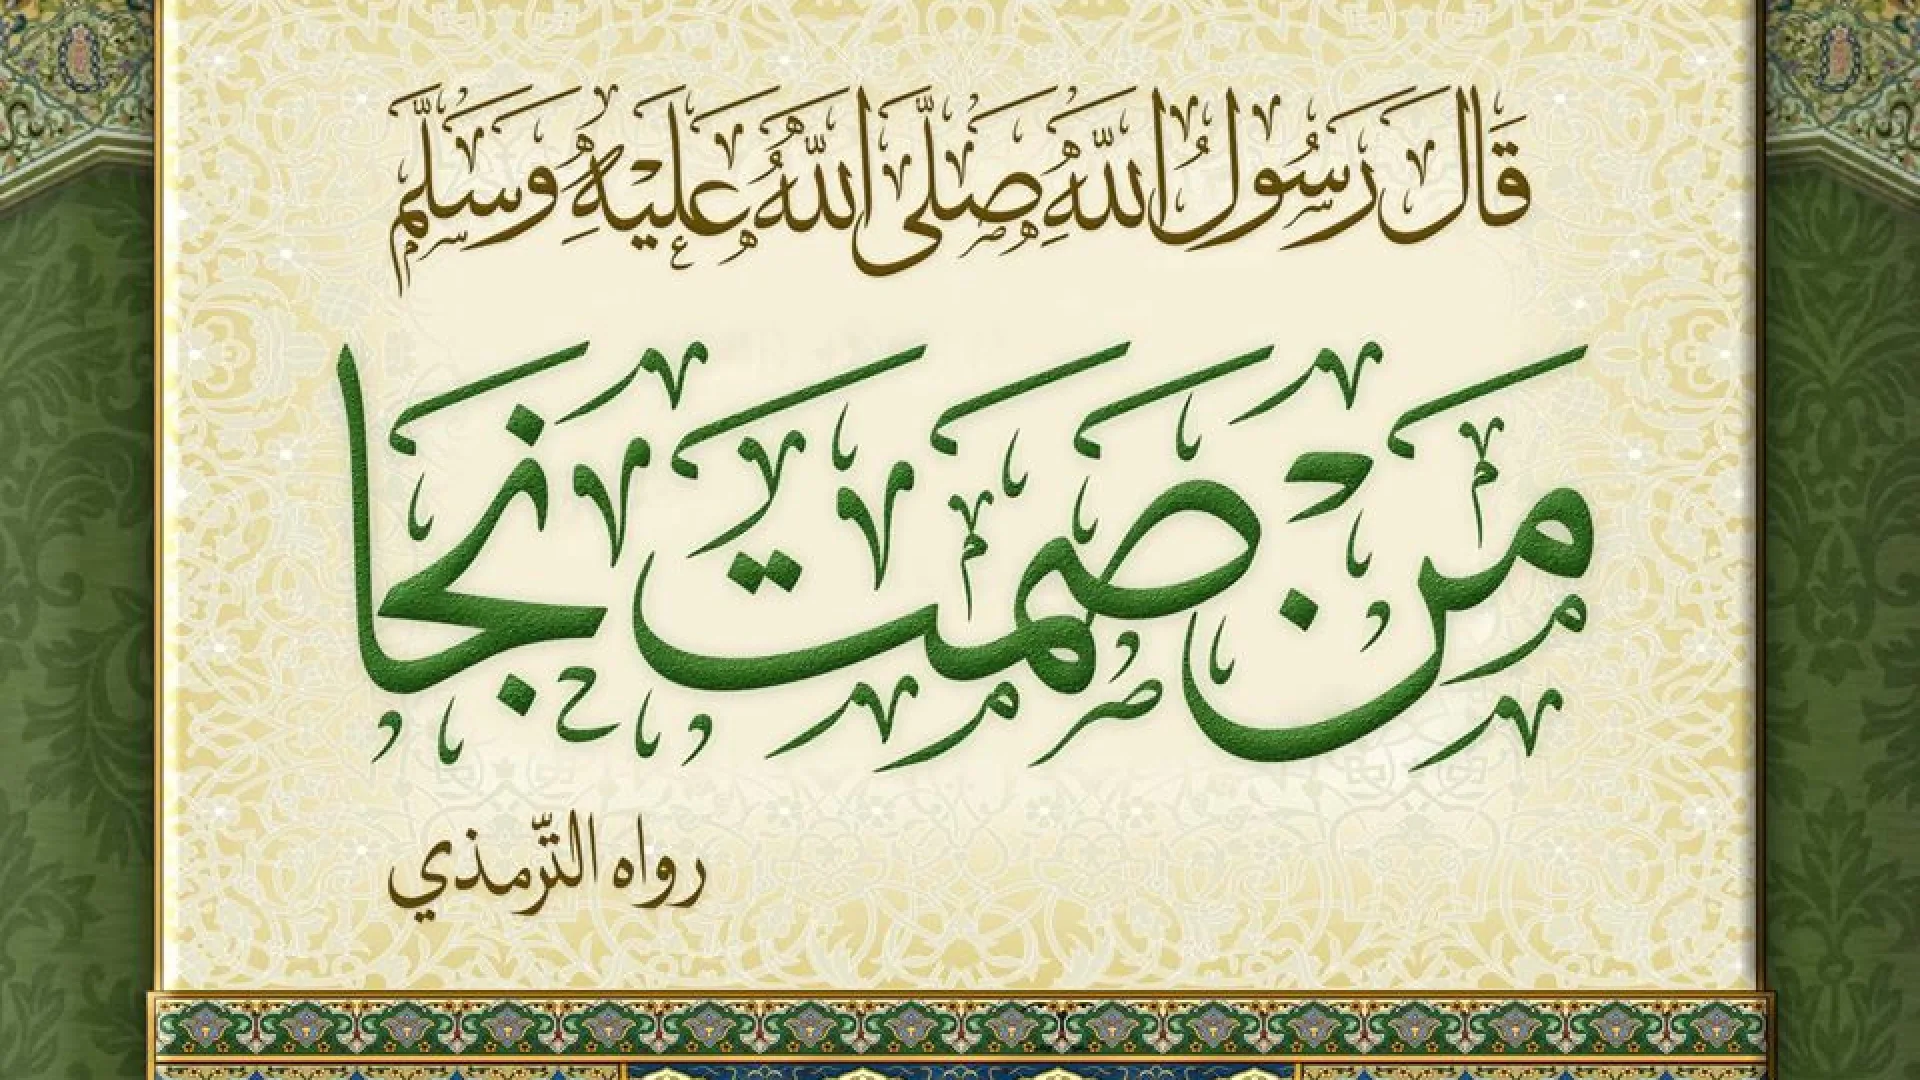 قَالَ رَسُولُ اللّٰهِ صَلَّى اللّٰهُ عَلَيْهِ وَسَلَّمَ
مَنْ صَمَتَ نَجَا
رواه الترّمذي